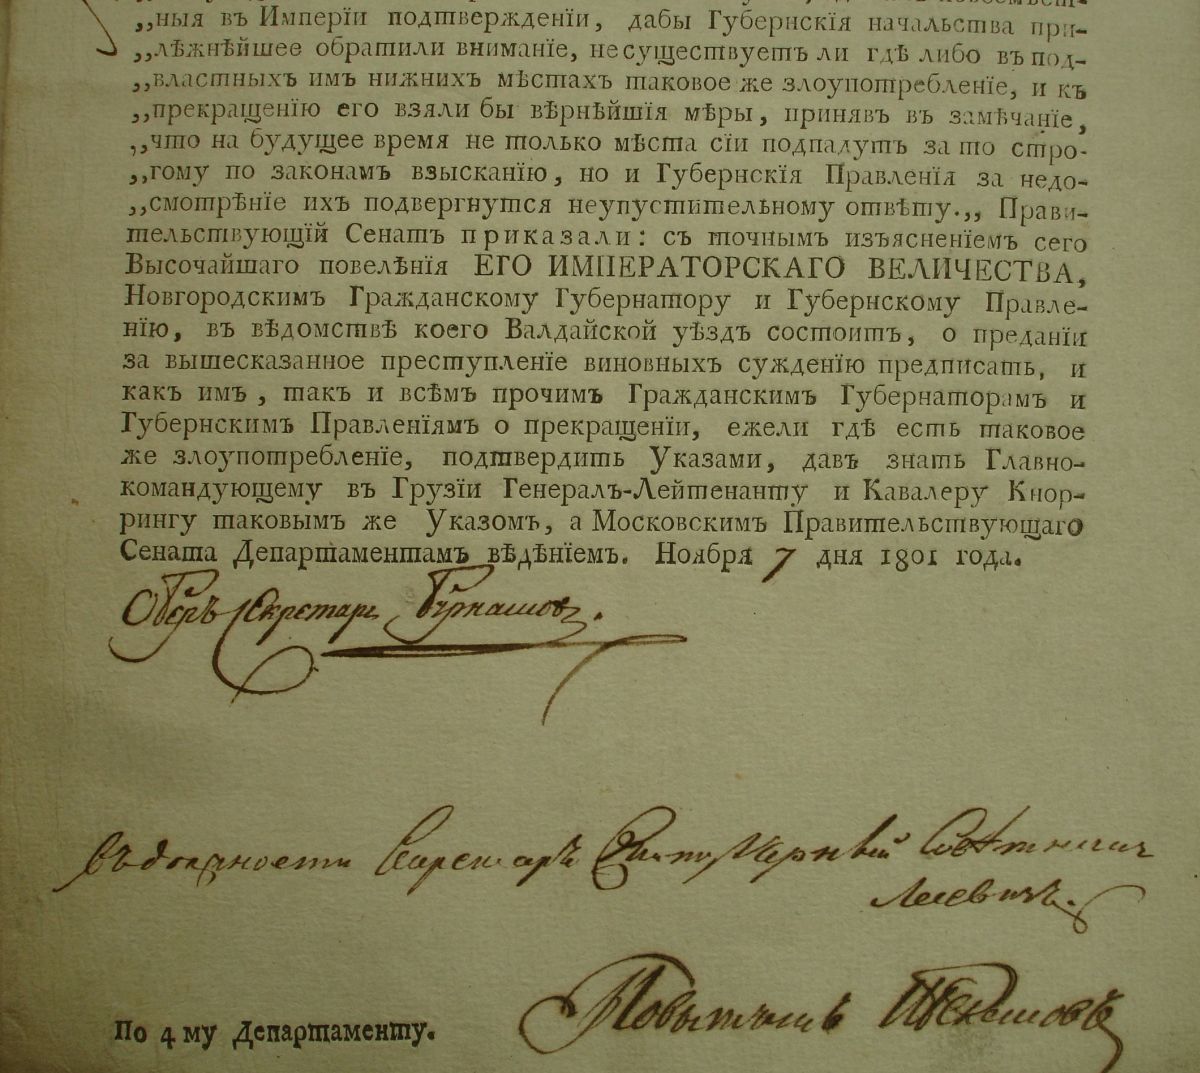 „ныя въ Имперїи подтвержденїи, дабы Губернскїя начальства при-
„лѣжнѣйшее обратили вниманїе, несуществуетъ ли гдѣ либо въ под-
„властныхъ имъ нижнихъ мѣстахъ таковое же злоупотребленїе, и къ
„прекращенїю его взяли бы вѣрнѣйшїя мѣры, принявъ въ замѣчанїе,
„что на будущее время не только мѣста сїи подпадутъ за то стро-
„гому по законамъ взысканїю, но и Губернскїя Правленїя за недо-
„смотрѣнїе ихъ подвергнутся неупустительному отвѣту.„ Прави-
тельствующїй Сенатъ приказали: съ точнымъ изъясненїемъ сего
Высочайшаго повелѣнїя ЕГО ИМПЕРАТОРСКАГО ВЕЛИЧЕСТВА,
Новгородскимъ Гражданскому Губернатору и Губернскому Правле-
нїю, въ вѣдомствѣ коего Валдайской уѣздъ состоитъ, о преданїи
за вышесказанное преступленїе виновныхъ сужденїю предписать, и
какъ имъ, такъ и всѣмъ прочимъ Гражданскимъ Губернаторамъ и
Губернскимъ Правленїямъ о прекращенїи, ежели гдѣ есть таковое
же злоупотребленїе, подтвердить Указами, давъ знать Главно-
командующему въ Грузїи Генералъ-Лейтенанту и Кавалеру Кнор-
рингу таковымъ же Указомъ, а Московскимъ Правительствующаго
Сената Департаментамъ вѣдѣнїемъ. Ноября 7 дня 1801 года.
Оберъ секретарь Бурнашовъ.
въ должности Секретаръ Титулярный Совѣтникъ
По 4 му Департаменту.
Повытчикъ